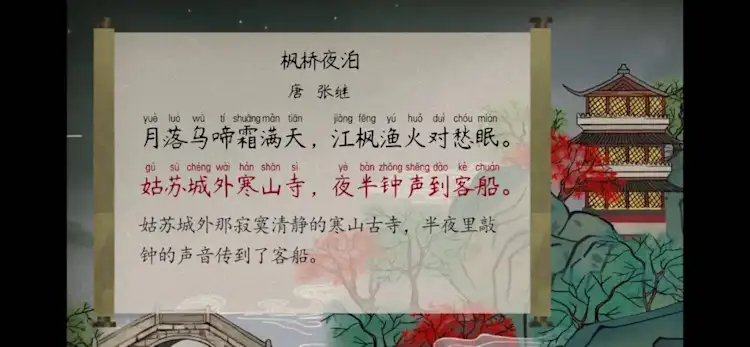 枫桥夜泊
唐 张继
yuè luò wū tí shuāng mǎn tiān jiāng fēng yú huǒ duì chóu mián
月落乌啼霜满天，江枫渔火对愁眠。
gū sū chéng wài hán shān sì yè bàn zhōng shēng dào kè chuán
姑苏城外寒山寺，夜半钟声到客船。
姑苏城外那寂寞清静的寒山古寺，半夜里敲
钟的声音传到了客船。